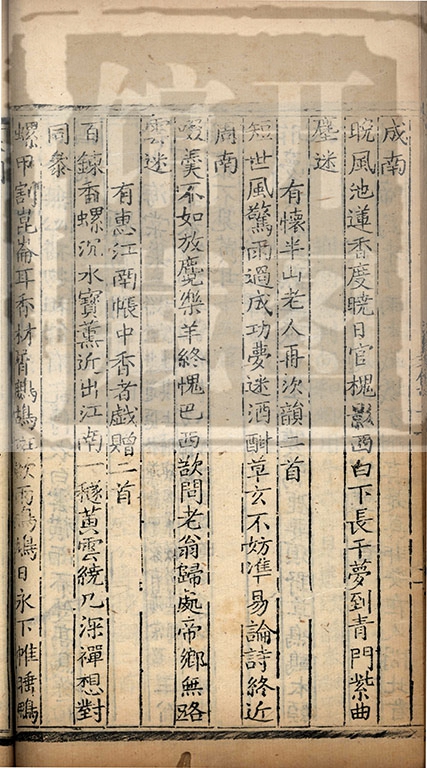 成南
晚風池蓮香度曉日官槐影西白下長干夢到青門紫曲
塵迷
有懷半山老人再次韻二首
短世風驚雨過成功夢迷酒酣草玄不妨準易論詩終近
周南
啜羹不如放麑樂羊終愧巴西欲問老翁歸處帝鄉無路
雲迷
有惠江南帳中香者戲贈二首
百鍊香螺沉水寶薰近出江南一穟黃雲繞几深禪想對
同參
螺甲割崑崙耳香材屑鷓鴣斑欲雨鳴鳩日永下帷睡鴨